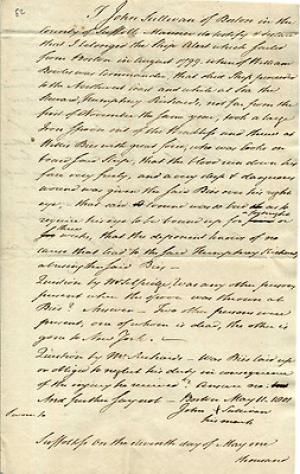 I John Sullivan of Boston in the
County of Suffolk Mariner do testify & declare
that I belonged the Ship Alert which sailed
from Boston in August 1799. when of William
Bowles was Commander, that said Ship proceeded
to the Northwest Coast and while at Sea the
Steward, Humphrey Richards, not far from the
first of November the same year, took a large
Iron Spoon out of the and threw at
Bris with great force, who was
board said Ship, that the blood run down his
face very freely, and a very deep & dangerous
wound was given the said Bris over his right
eye - that said wound was so bad as to
require his eyes to be bound up for a fortnight or
three weeks, that the deponent knows of no
cause that lead to the said Humphrey Richards
abusing the said Bris -
Question by was any other person
present when the spoon was thrown at
Bris? Answer - Two other persons were
present, one of whom is dead, the other is
gone to New York. -
Question by Mr Richards - Was Bris laid up
or obliged to neglect his duty in consequence
of the injury he received? Answer no.
And further say not - Boston May 11. 1801
John X Sullivan
his mark
Suffolk ss on the eleventh day of May one
thousand